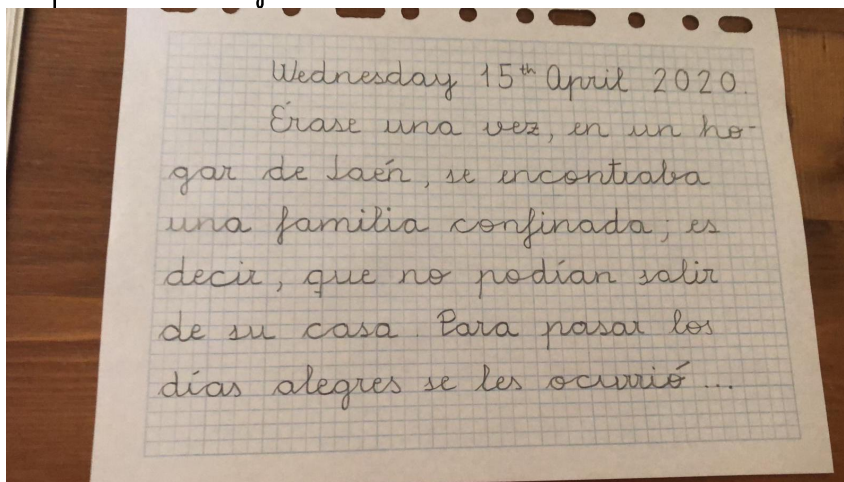 Wednesday 15th April 2020.
Érase una vez, en un ho-
gar de Jaén, se encontraba
una familia confinada; es
decir, que no podían salir
de su casa. Para pasar los
días alegres se les ocurrió...